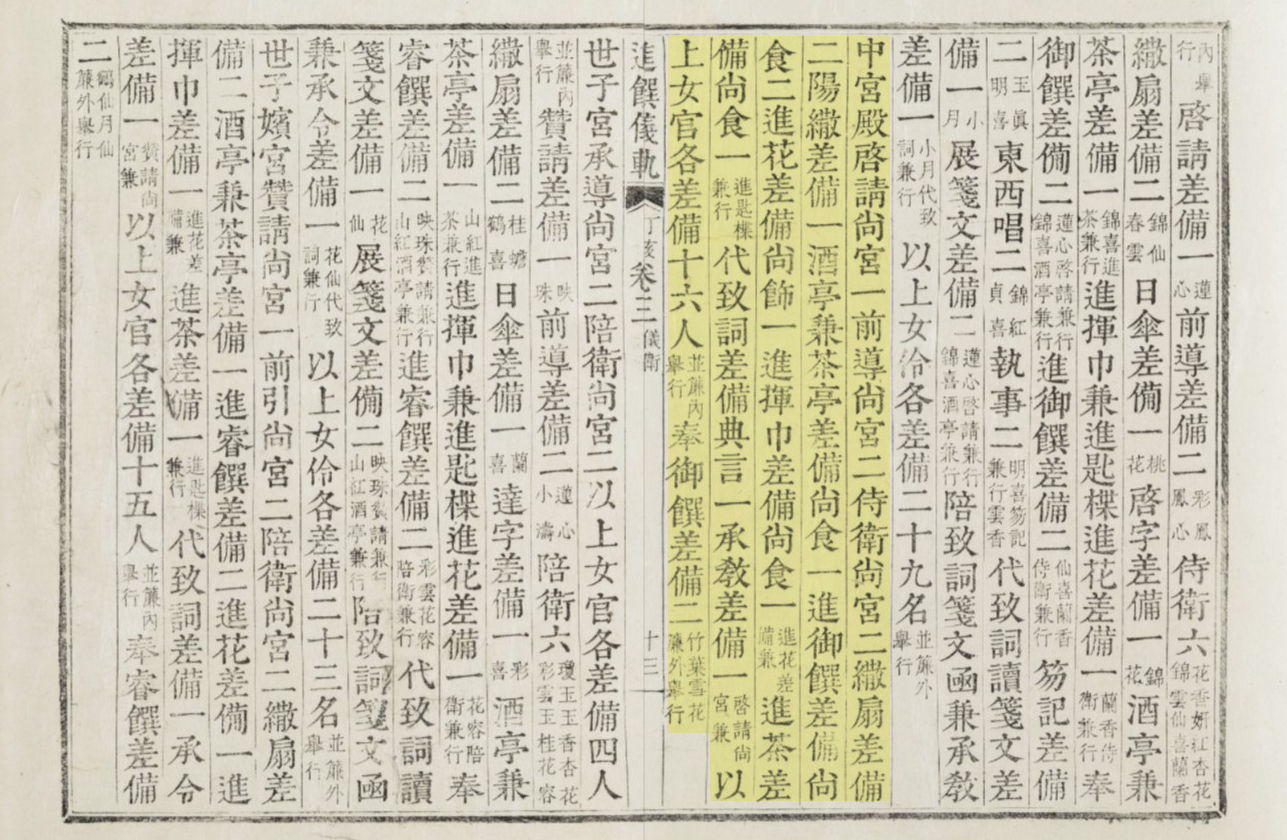 內擧行啓請差備一蓮心前導差備二彩鳳鳳心侍衛六花香姸紅杏花錦雲仙喜蘭香
繖扇差備二錦仙春雲日傘差備一桃花啓字差備一錦花酒亭兼
茶亭差備一錦喜進茶兼行進揮巾兼進匙楪進花差備一蘭香侍衛兼行奉
御饌差備二蓮心啓請兼行錦喜酒亭兼行進御饌差備二仙喜蘭香侍衛兼行笏記差備
二玉眞明喜東西唱二錦紅貞喜執事二明喜笏記兼行雲香代致詞讀箋文差
備一小月展箋文差備二蓮心啓請兼行錦喜酒亭兼行陪致詞箋文函兼承敎
差備一小月代致詞兼行以上女伶各差備二十九名並簾外擧行
中宮殿啓請尙宮一前導尙宮二侍衛尙宮二繖扇差備
二陽繖差備一酒亭兼茶亭差備尙食一進御饌差備尙
食二進花差備尙飾一進揮巾差備尙食一進花差備兼進茶差
備尙食一進匙楪兼行代致詞差備典言一承敎差備一啓請尙宮兼以
上女官各差備十六人並簾內擧行奉御饌差備二竹葉雪花簾外擧行
進饌儀軌 丁亥 卷二 儀衛 十三
世子宮承導尙宮二陪衛尙宮二以上女官各差備四人
並簾內擧行贊請差備一映珠前導差備二蓮心小濤陪衛六瓊玉玉香杏花彩雲玉桂花容
繖扇差備二桂蟾鶴喜日傘差備一蘭喜達字差備一彩喜酒亭兼
茶亭差備一山紅進茶兼行進揮巾兼進匙楪進花差備一花容陪衛兼行奉
睿饌差備二映珠贊請兼行山紅酒亭兼行進睿饌差備二彩雲花容陪衛兼行代致詞讀
箋文差備一花仙展箋文差備二映珠贊請兼行山紅酒亭兼行陪致詞箋文函
兼承令差備一花仙代致詞兼行以上女伶各差備二十三名並簾外擧行
世子嬪宮贊請尙宮一前引尙宮二陪衛尙宮二繖扇差
備二酒亭兼茶亭差備一進睿饌差備二進花差備一進
揮巾差備一進花差備兼進茶差備一進匙楪兼行代致詞差備一承令
差備一贊請尙宮兼以上女官各差備十五人並簾內擧行奉睿饌差備
二鶴仙月仙簾外擧行